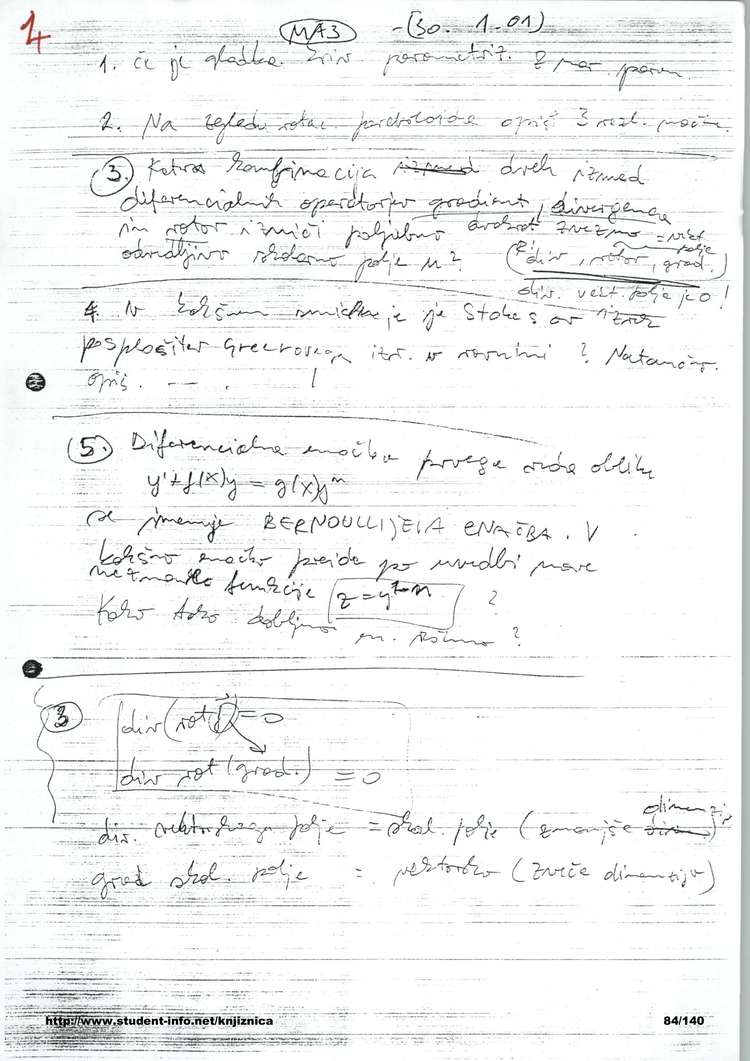 14
MA3 - (30. 1. 01)
1. Če je gladka kriv parametriz.
2. Na zgledu rotac. paraboloida opiš 3 razl. načine.
3. Katera kombinacija izmed dveh izmed
diferencialnih operatorjev gradient, divergenca
in rotor izniči poljubno dvakrat zvezno = vekt polje
odvedljivo skalarno polje u? (div, rotor, grad.)
div. vekt. polje je 0!
4. V kakšnem smislu je Stokesov izrek
posplošitev Greenovega izr. v ravnini? Natančno
opiš. — . !
5. Diferencialna enačba prvega reda oblike
y'+f(x)y = g(x)yⁿ
se imenuje BERNOULLIJEVA ENAČBA. V
kakšno enačbo preide po uvedbi nove
neznanke funkcije z = y¹⁻ⁿ ?
Kako tako dobljeno en. rešimo?
3 div(rot) = 0
div rot (grad.) = 0
div. vektorskega polje = skal. polje (zmanjša dimenzijo)
grad skal. polje = vektorsko (zveča dimenzijo)
http://www.student-info.net/knjiznica 84/140